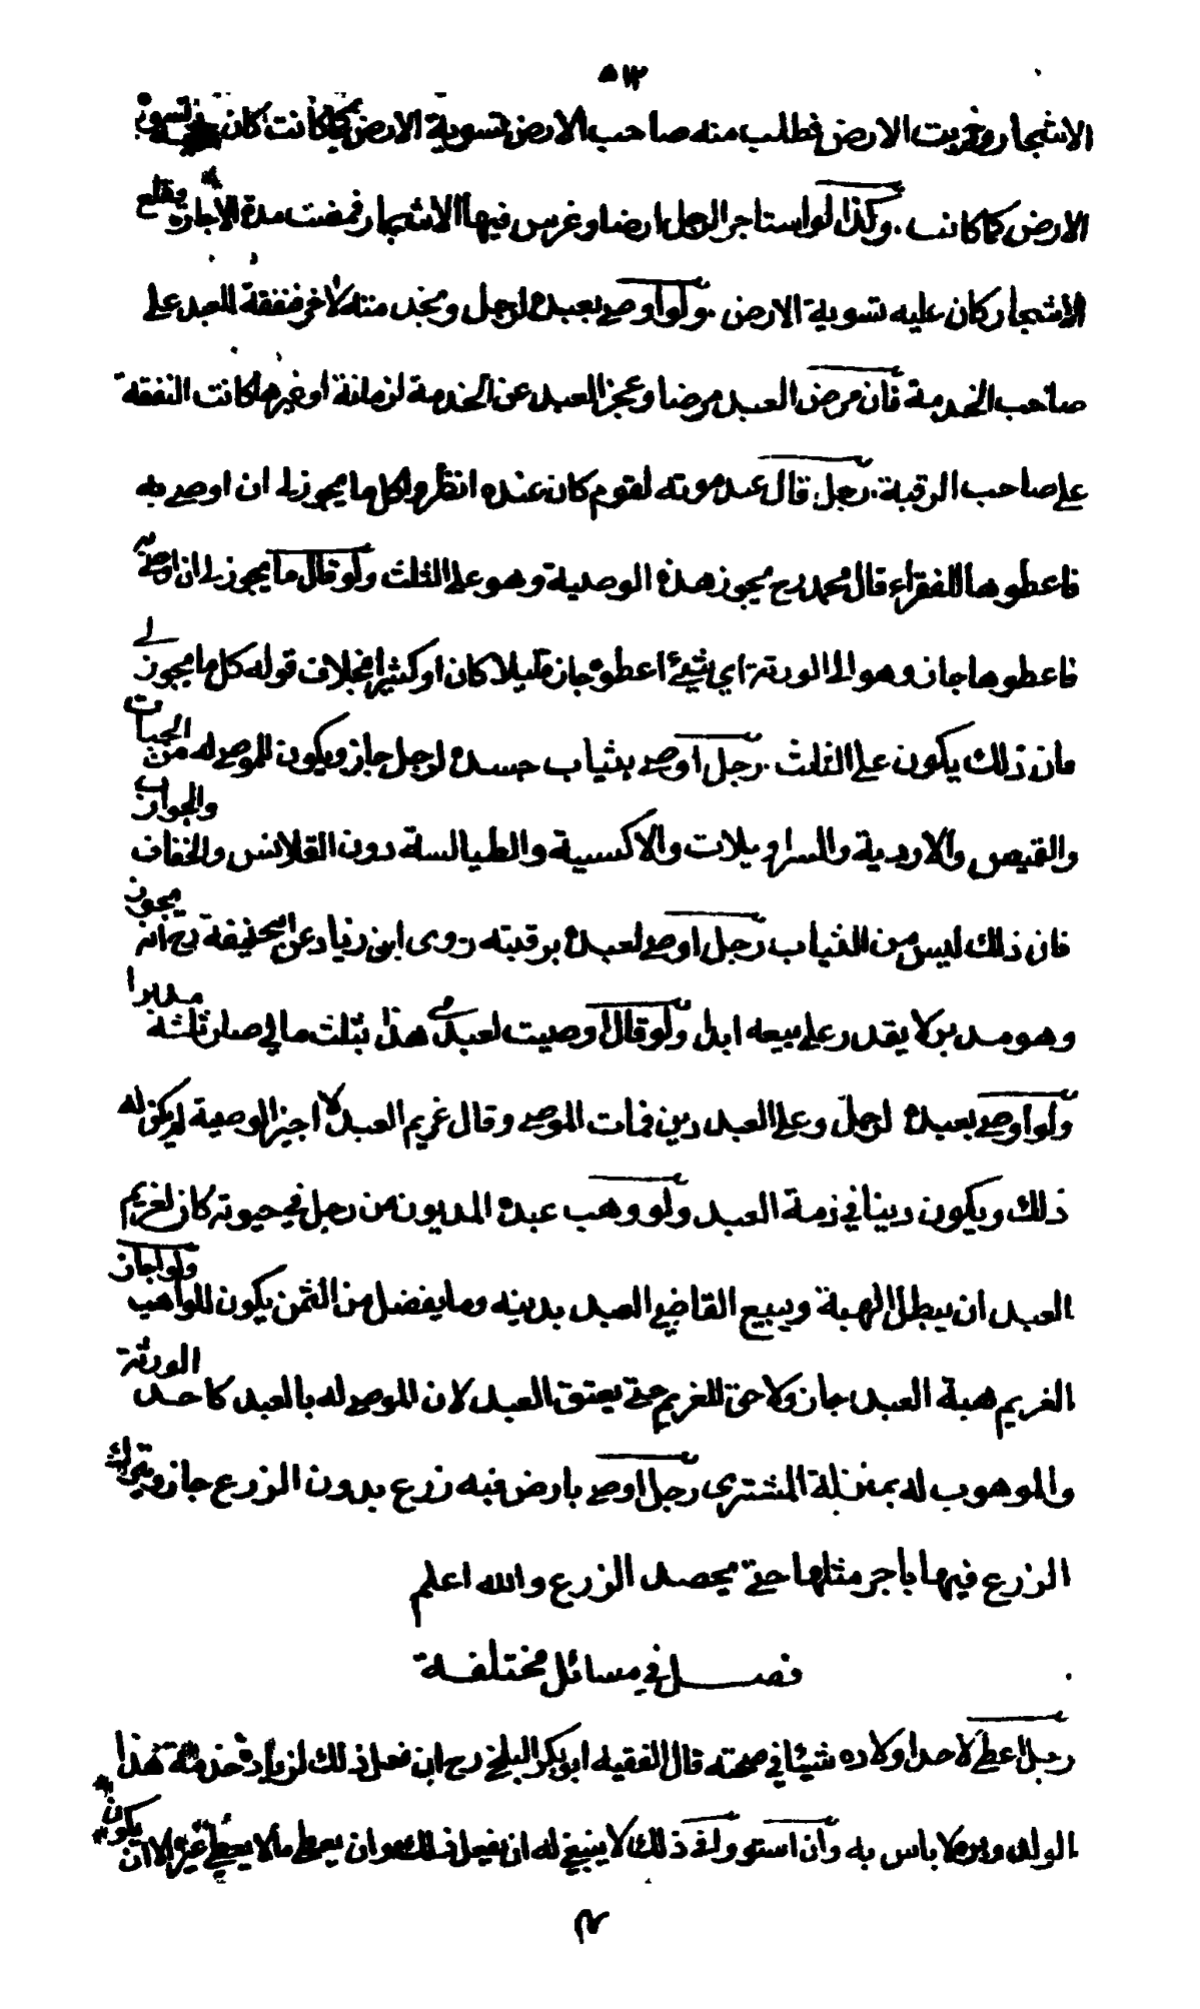 ٥١٢
الاشجار وخربت الارض فطلب منه صاحب الارض تسوية الارض كما كانت كان عليه تسوية
الارض كما كانت . وكذا لو استاجر الرجل ارضا وغرس فيها الاشجار فمضت مدة الاجارة وقلع
الاشجار كان عليه تسوية الارض . ولو اوصى بعبده لرجل وبخدمته لاخر فنفقة العبد على
صاحب الخدمة فان مرض العبد مرضا وعجز العبد عن الخدمة لزمانة او غيرها كانت النفقة
على صاحب الرقبة . رجل قال عند موته لقوم كان عنده انظروا كل ما يجوز لي ان اوصي به
فاعطوها للفقراء قال محمد رح يجوز هذه الوصية وهو على الثلث ولو قال ما يجوز لي ان اوصي به
فاعطوها جاز وهو الى الورثة اي شيئ اعطوه جاز قليلا كان او كثيرا بخلاف قوله كل ما يجوز لي
فان ذلك يكون على الثلث . رجل اوصى بثياب جسده لرجل جاز ويكون للموصى له من الجباب
والقميص والاردية والسراويلات والاكسية والطيالسة دون القلانس والخفاف والجوارب
فان ذلك ليس من الثياب رجل اوصى لعبده برقبته روى ابن زياد عن ابي حنيفة رح انه يجوز
وهو مدبر لا يقدر على بيعه ابدا ولو قال اوصيت لعبدي هذا بثلث مالي صار ثلثه مدبرا
ولو اوصى بعبده لرجل وعلى العبد دين فمات الموصى وقال غريم العبد لا اجيز الوصية لم يكن له
ذلك ويكون دينا في زمة العبد ولو وهب عبده المديون من رجل في حيوته كان لغريم
العبد ان يبطل الهبة ويبيع القاضي العبد بدينه وما يفضل من الثمن يكون للواهب ولو اجاز
الغريم هبة العبد جاز ولا حق للغريم حتى يعتق العبد لان للموصى له بالعبد كاحد الورثة
والموهوب له بمنزلة المشترى رجل اوصى بارض فيه زرع بدون الزرع جاز ويترك
الزرع فيها باجر مثلها حتى يحصد الزرع والله اعلم
فصل في مسائل مختلفة
رجل اعطى لاحد اولاده شيئا في صحته قال الفقيه ابو بكر البلخي رح ان فعل ذلك لزيادة خدمة هذا
الولد وبره لا باس به وان استووا في ذلك لا ينبغي له ان يفعل ذلك وان يعطي ما لا يعطي غيره الا ان يكون